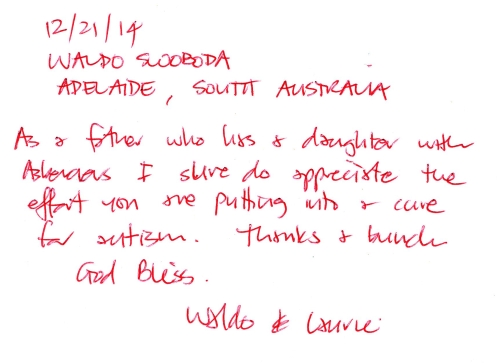 12/21/14
WALDO SWOBODA
ADELAIDE, SOUTH AUSTRALIA
As a father who has a daughter with
Asbergers I sure do appreciate the
effort you are putting into a cure
for autism. Thanks a bunch
God Bless.
Waldo & Laurie